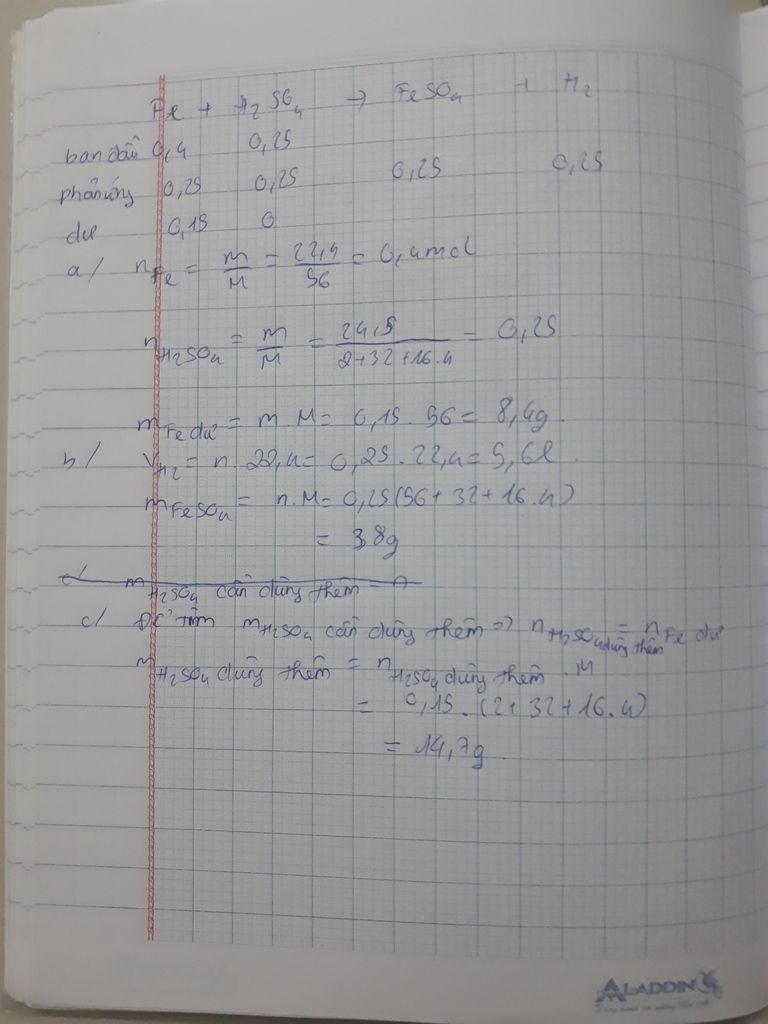 Fe + H2SO4 → FeSO4 + H2
ban đầu 0,4 0,25
phản ứng 0,25 0,25 0,25 0,25
dư 0,15 0
a/ nFe = m/M = 22,4/56 = 0,4 mol
nH2SO4 = m/M = 24,5/2+32+16.4 = 0,25
mFe dư = m.M = 0,15.56 = 8,4g.
b/ VH2 = n.22,4 = 0,25.22,4 = 5,6l.
mFeSO4 = n.M = 0,25(56+32+16.4)
= 38g
c/ mH2SO4 cần dùng thêm =
c/ Để tìm mH2SO4 cần dùng thêm => nH2SO4 dùng thêm = nFe dư
mH2SO4 dùng thêm = nH2SO4 dùng thêm.M
= 0,15.(2+32+16.4)
= 14,7g
ALADDIN